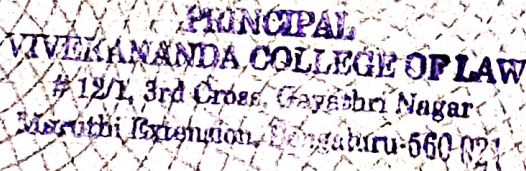 PRINCIPAL
VIVEKANANDA COLLEGE OF LAW
# 12/1, 3rd Cross, Gayathri Nagar
Maruthi Extension, Bengaluru-560 021